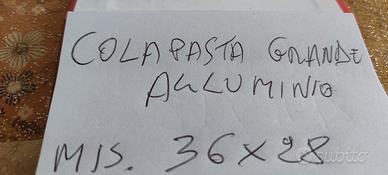 COLAPASTA GRANDE
ALLUMINIO
MIS. 36X28
subito